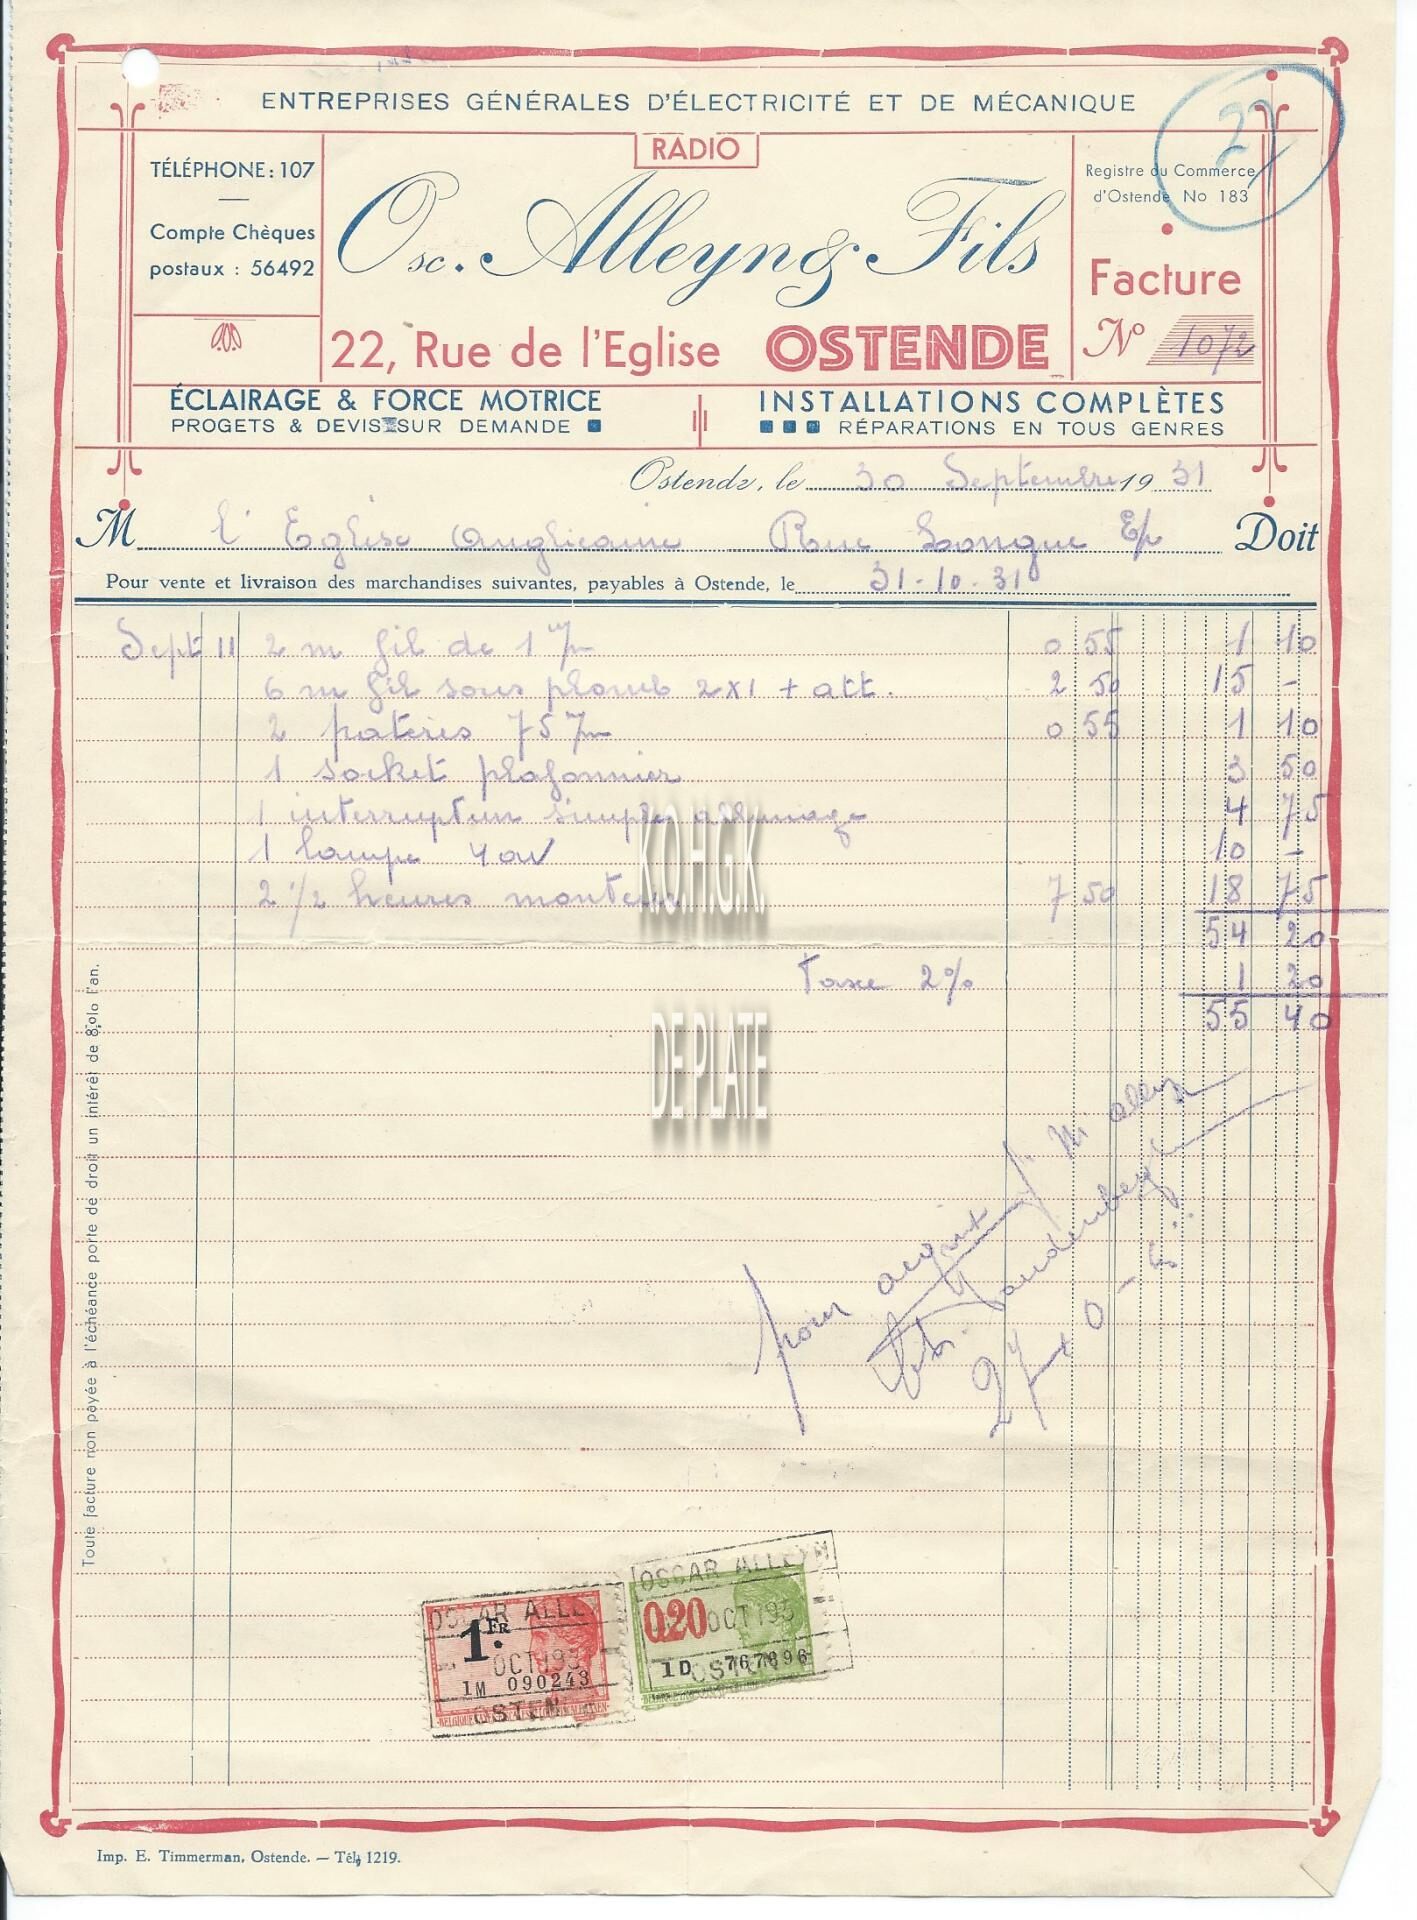 27
ENTREPRISES GÉNÉRALES D'ÉLECTRICITÉ ET DE MÉCANIQUE
RADIO
TÉLÉPHONE: 107
Compte Chèques
postaux : 56492
Osc. Alleyn & Fils
22, Rue de l'Eglise OSTENDE
Registre du Commerce
d'Ostende No 183
Facture
No 1072
ÉCLAIRAGE & FORCE MOTRICE
PROGETS & DEVIS SUR DEMANDE
INSTALLATIONS COMPLÈTES
RÉPARATIONS EN TOUS GENRES
Ostende, le 30 Septembre 1931
M l'Eglise Anglicaine Rue Longue E/v Doit
Pour vente et livraison des marchandises suivantes, payables à Ostende, le 31-10-31
Sept 11 2 m fil de 1 m/m 0 55 1 10
6 m fil sous plomb 2x1 + att. 2 50 15 -
2 patères 75 m/m 0 55 1 10
1 socket plafonnier 3 50
1 interrupteur simple allumage 4 75
1 lampe 40W 10 -
2 1/2 heures monteur 7 50 18 75
54 20
Taxe 2% 1 20
55 40
K.O.H.G.K.
DE PLATE
Toute facture non payée à l'échéance porte de droit un intérêt de 8,o/o l'an.
pour acquit
Vandenberghe
OSCAR ALLEYN
1 FR
OCT 193
1M 090243
OSTEN
OSCAR ALLEYN
0.20 OCT 193
1D 767896
OSTEN
Imp. E. Timmerman, Ostende. — Tél, 1219.